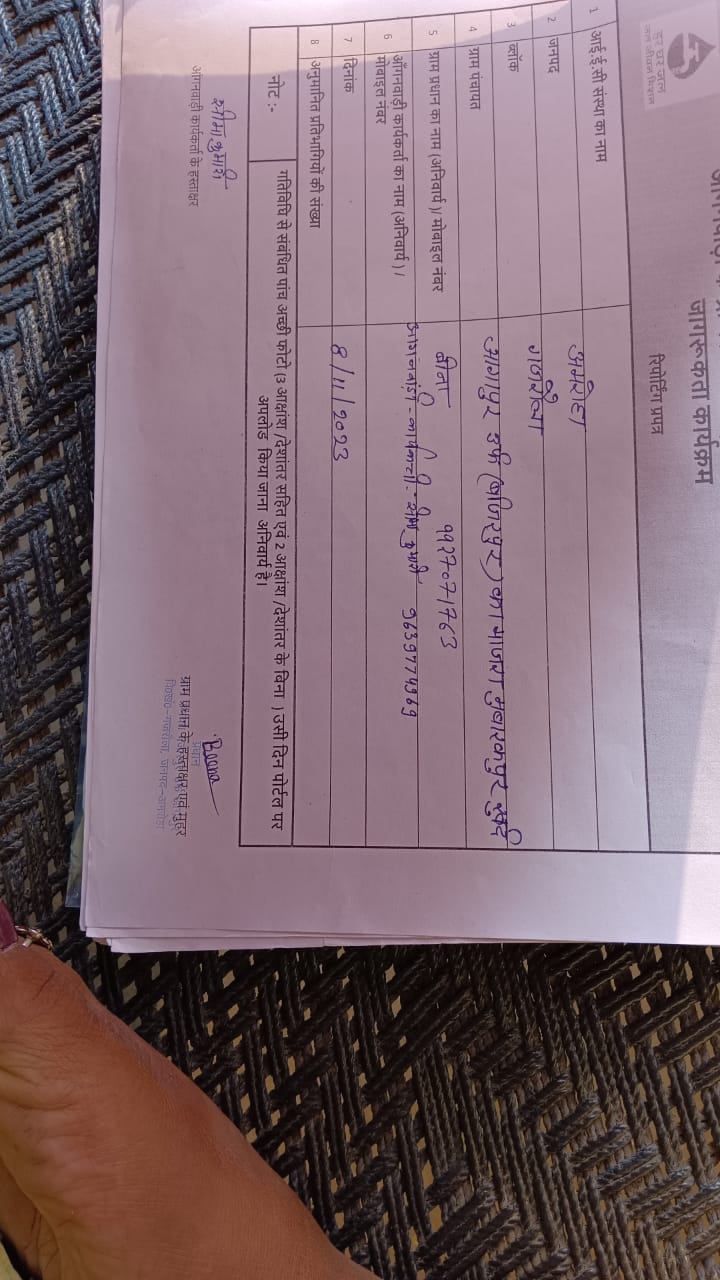 हर घर जल
जल जीवन मिशन
जागरूकता कार्यक्रम
रिपोर्टिंग प्रपत्र
1 आई.ई.सी संस्था का नाम
2 जनपद अमरोहा
3 ब्लॉक गजरौला
4 ग्राम पंचायत उर्फ का माजरा मुबारकपुर खुर्द
5 ग्राम प्रधान का नाम (अनिवार्य)/ मोबाइल नंबर बीना
6 आँगनवाड़ी कार्यकर्ता का नाम (अनिवार्य) /
मोबाइल नंबर
7 दिनांक 8/11/2023
8 अनुमानित प्रतिभागियों की संख्या
नोट :- गतिविधि से संबंधित पांच अच्छी फोटो (3 आक्षांश /देशांतर सहित एवं 2 आक्षांश /देशांतर के विना ) उसी दिन पोर्टल पर
अपलोड किया जाना अनिवार्य है।
सीमा कुमारी
आंगनवाड़ी कार्यकर्ता के हस्ताक्षर
Beena
प्रधान
ग्राम प्रधान के हस्ताक्षर एवं मुहर